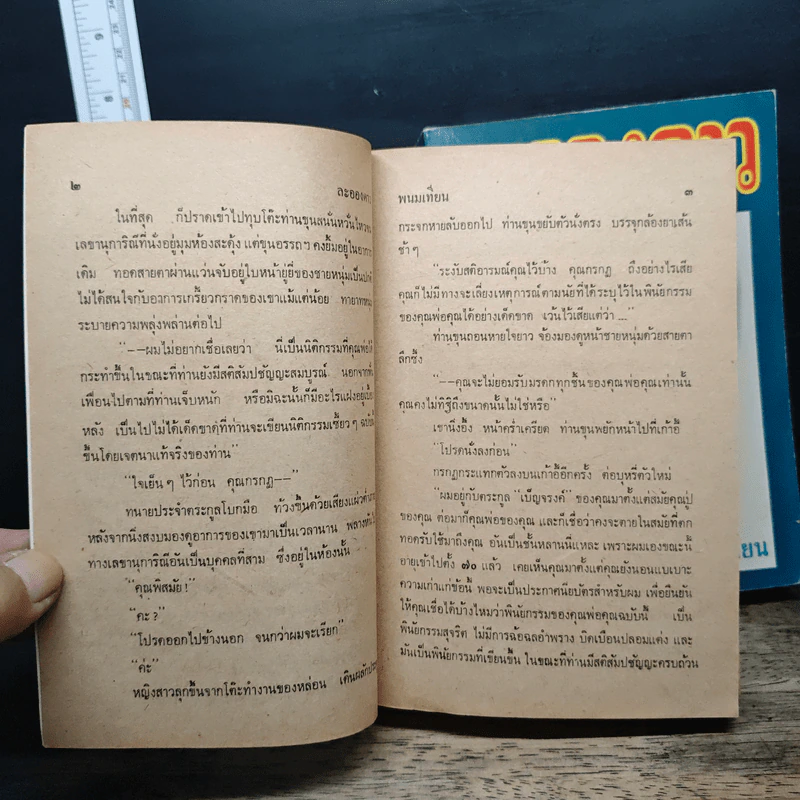 ๒
ละอองดาว
ในที่สุด ก็ปราดเข้าไปทุบโต๊ะท่านขุนสนั่นหวั่นไหวจน
เลขานุการิณีที่นั่งอยู่มุมห้องสะดุ้ง แต่ขุนอรรถฯ คงยิ้มอยู่ในอาการ
เดิม ทอดสายตาผ่านแว่นจับอยู่ใบหน้ายู่ยี่ของชายหนุ่มเป็นปกติ
ไม่ได้สนใจกับอาการเกรี้ยวกราดของเขาแม้แต่น้อย ทายาทหนุ่ม
ระบายความพลุ่งพล่านต่อไป
"——ผมไม่อยากเชื่อเลยว่า นี่เป็นนิติกรรมที่คุณพ่อได้
กระทำขึ้นในขณะที่ท่านยังมีสติสัมปชัญญะสมบูรณ์ นอกจาก
เพื่อนไปตามที่ท่านเจ็บหนัก หรือมิฉะนั้นก็มีอะไรแฝงอยู่เบื้อง
หลัง เป็นไปไม่ได้เด็ดขาดที่ท่านจะเขียนนิติกรรมเซี้ยวๆ ฉบับนี้
ขึ้นโดยเจตนาแท้จริงของท่าน"
"ใจเย็นๆ ไว้ก่อน คุณกรกฎ——"
ทนายประจำตระกูลโบกมือ ท้วงขึ้นด้วยเสียงแผ่วต่ำ
หลังจากนั่งสงบมองดูอาการของเขามาเป็นเวลานาน พลางหัน
ทางเลขานุการิณีอันเป็นบุคคลที่สาม ซึ่งอยู่ในห้องนั้น
"คุณพิสมัย!"
"คะ?"
"โปรดออกไปข้างนอก จนกว่าผมจะเรียก"
"ค่ะ"
หญิงสาวลุกขึ้นจากโต๊ะทำงานของหล่อน เดินผลักประตู
พนมเทียน
๓
กระจกหายลับออกไป ท่านขุนขยับตัวนั่งตรง บรรจุกล้องยาเส้น
ช้าๆ
"ระงับสติอารมณ์คุณไว้บ้าง คุณกรกฎ ถึงอย่างไรเสีย
คุณก็ไม่มีทางจะเลี่ยงเหตุการณ์ตามนัยที่ได้ระบุไว้ในพินัยกรรม
ของคุณพ่อคุณได้อย่างเด็ดขาด เว้นไว้เสียแต่ว่า ..."
ท่านขุนถอนหายใจยาว จ้องมองดูหน้าชายหนุ่มด้วยสายตา
ลึกซึ้ง
"——คุณจะไม่ยอมรับมรดกทุกชิ้นของคุณพ่อคุณเท่านั้น
คุณคงไม่ทิฐิถึงขนาดนั้นไม่ใช่หรือ"
เขานิ่งอึ้ง หน้าคร่ำเครียด ท่านขุนพยักหน้าไปที่เก้าอี้
"โปรดนั่งลงก่อน"
กรกฎกระแทกตัวลงบนเก้าอี้อีกครั้ง ต่อบุหรี่ตัวใหม่
"ผมอยู่กับตระกูล "เบ็ญจรงค์" ของคุณมาตั้งแต่สมัยคุณปู่
ของคุณ ต่อมาก็คุณพ่อของคุณ และก็เชื่อว่าคงจะตายในสมัยที่ตก
ทอดรับใช้มาถึงคุณ อันเป็นชั้นหลานนี่แหละ เพราะผมเองขณะนี้
อายุเข้าไปตั้ง ๗๐ แล้ว เคยเห็นคุณมาตั้งแต่คุณยังนอนแบเบาะ
ความเก่าแก่ข้อนี้ พอจะเป็นประกาศนียบัตรสำหรับผม เพื่อยืนยัน
ให้คุณเชื่อได้บ้างไหมว่าพินัยกรรมของคุณพ่อคุณฉบับนี้ เป็น
พินัยกรรมสุจริต ไม่มีการฉ้อฉลอำพราง บิดเบือนปลอมแต่ง และ
มันเป็นพินัยกรรมที่เขียนขึ้น ในขณะที่ท่านมีสติสัมปชัญญะครบถ้วน